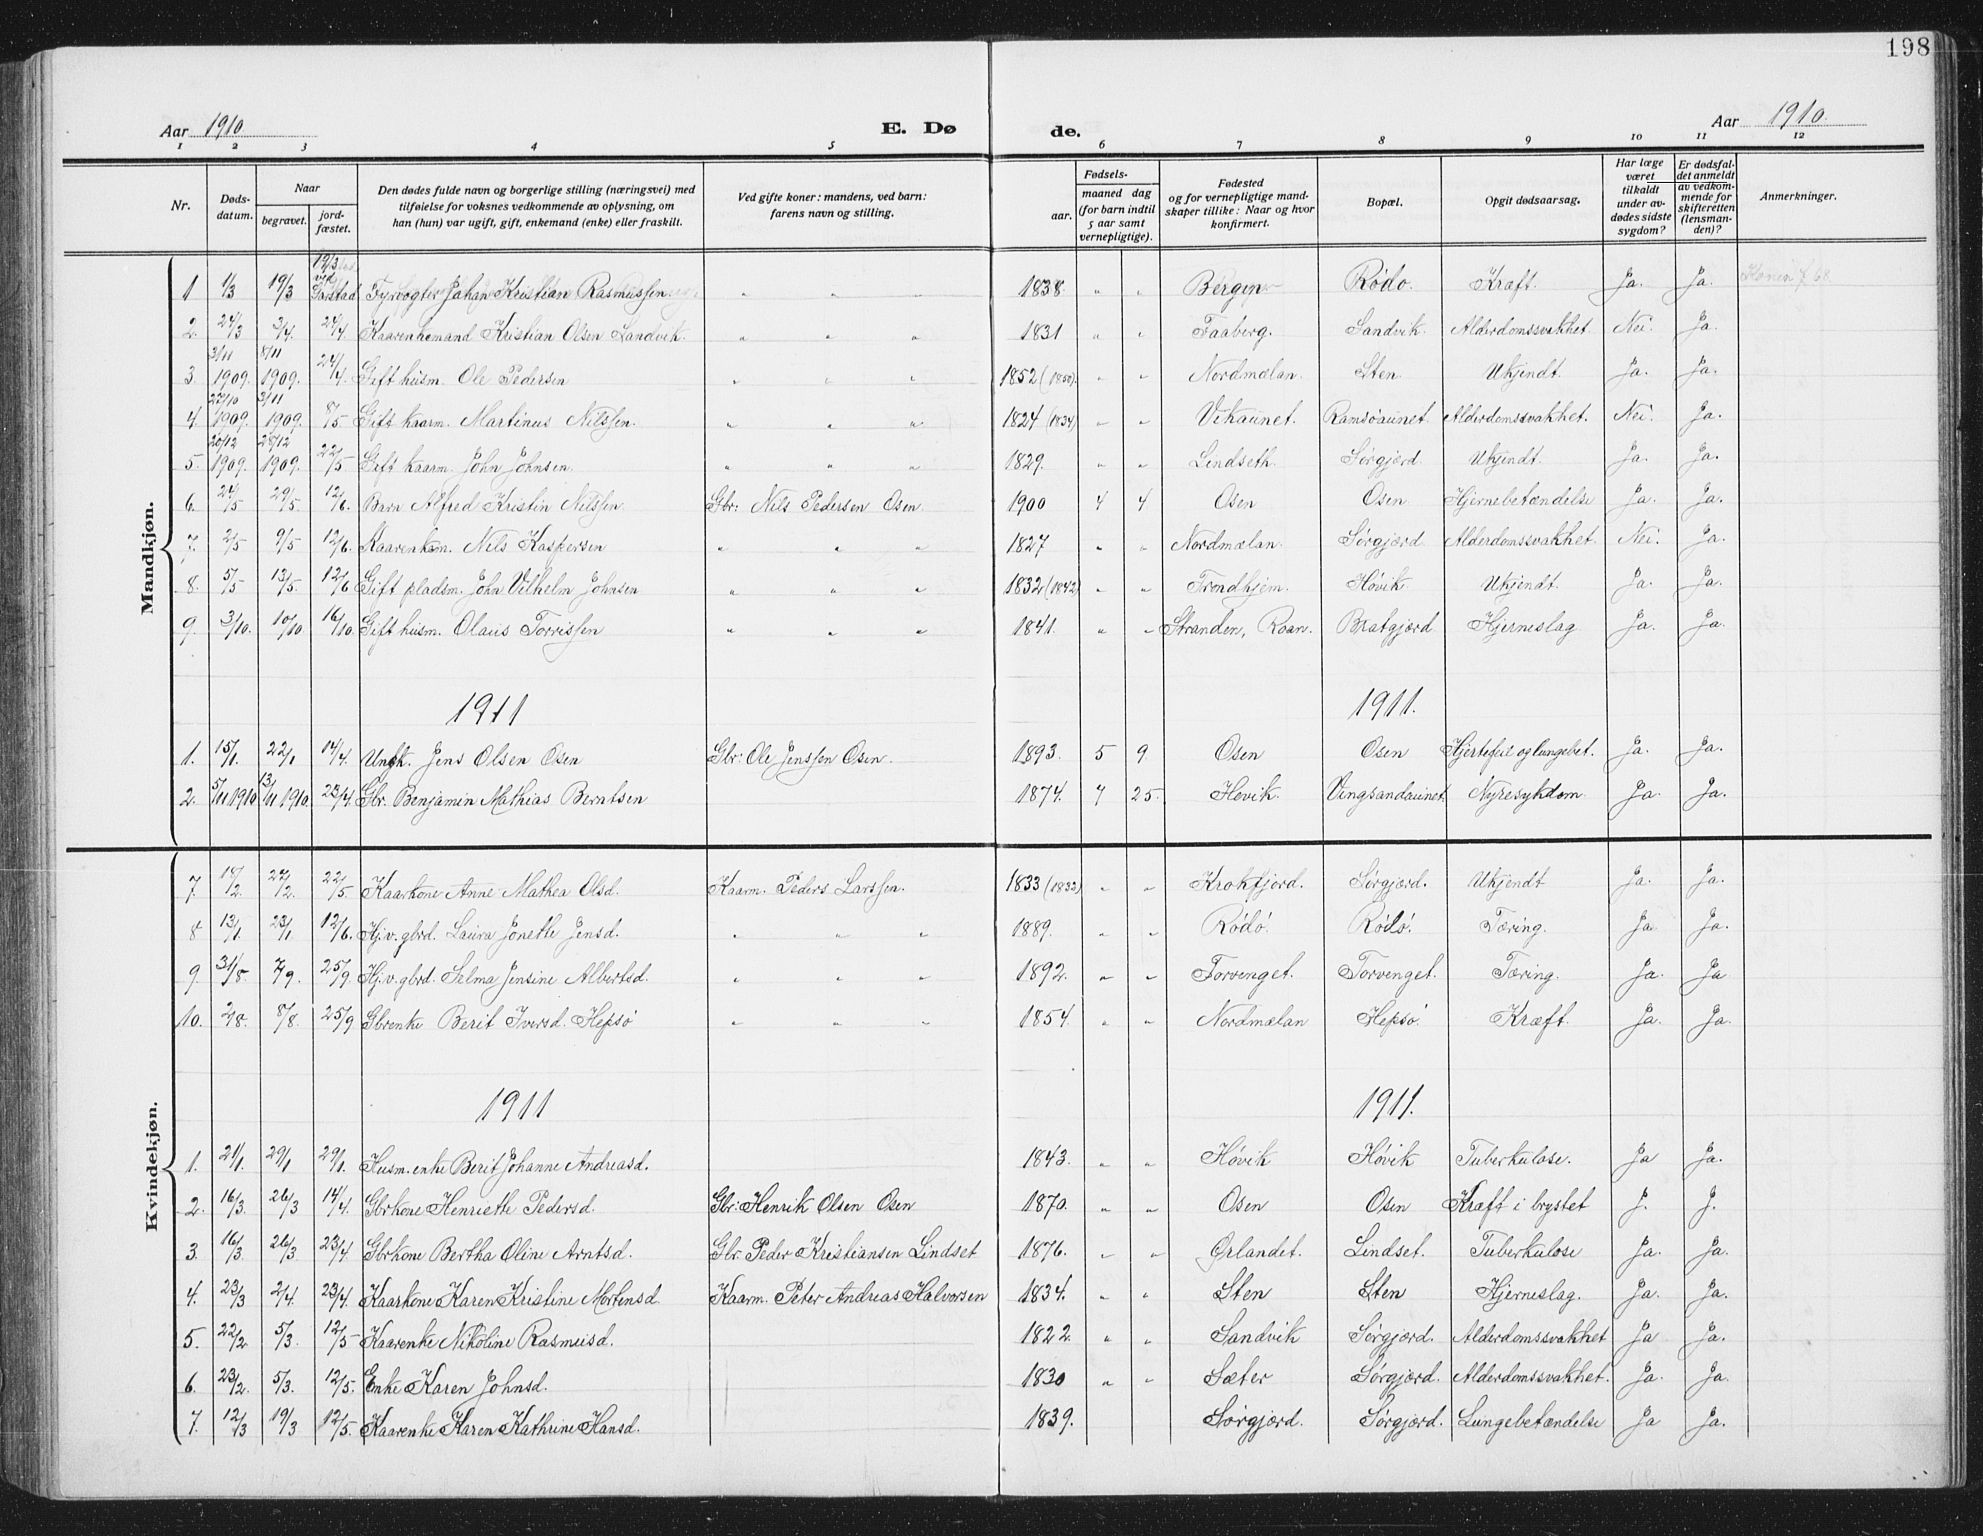 198
Aar 1910 E. Dø de. Aar 1910.
1 2 3 4 5 6 7 8 9 10 11 12
Nr. Døds-datum. Naar begravet. jord-fæstet. Den dødes fulde navn og borgerlige stilling (næringsvei) med tilføielse for voksnes vedkommende av oplysning, om han (hun) var ugift, gift, enkemand (enke) eller fraskilt. Ved gifte koner: mandens, ved barn: farens navn og stilling. Fødsels- aar. maaned dag (for barn indtil 5 aar samt vernepligtige). Fødested og for vernepligtige mand-skaper tillike: Naar og hvor konfirmert. Bopæl. Opgit dødsaarsag. Har læge været tilkaldt under av-dødes sidste sygdom? Er dødsfal-det anmeldt av vedkom-mende for skifteretten (lensman-den)? Anmerkninger.
Mandkjøn.
1 1/3 19/3 19/3 ved Fyrvogter Johan Kristian Rasmussen. " " " 1838 " " Bergen Rødø. Kræft. Ja. Ja.
2. 24/3 3/4. 24/4. Kaarenkemand Kristian Olsen Sandvik. " " " 1831 " " Faaberg. Sandvik. Alderdomssvakhet Nei. Ja.
3. 3/11 1909. 8/11 1909. 24/4. Gift husm. Ole Pedersen " " " 1852 (1850). " " Nordmælan. Sten. Ukjendt. Ja. Ja.
4. 27/10 1909. 3/11 1909. 8/5 Gift kaarm. Martinus Nilssen. " " " 1824 (1834) " " Vikaunet. Ramsøaunet. Alderdomssvakhet. Nei. Ja.
5. 20/12 1909. 28/12 1909. 22/5. Gift kaarm. John Johnsen. " " " 1829. " " Lindseth. Sørgjerd. Ukjendt. Ja. Ja.
6. 24/5 29/5. 12/6. Barn Alfred Kristin Nilssen. Gbr: Nils Pedersen Osen. 1900 4 4 Osen Osen Hjernebetændelse Ja. Ja.
7. 2/5 9/5 12/6. Kaarenkem. Nils Kaspersen " " " 1827 " " Nordmælan. Sørgjerd Alderdomssvakhet. Nei. Ja.
8. 5/5 13/5. 12/6 Gift pladsm. John Vilhelm Johnsen " " " 1832 (1842) " " Trondhjem. Høvik. Ukjendt. Ja. Ja.
9. 3/10. 10/10 16/10. Gift husm. Olaus Torrissen " " " 1841. " " Stranden, Roan. Bratgjerd Hjerneslag Ja. Ja.
1911 1911.
1. 15/1. 22/1 14/4. Ungk. Jens Olsen Osen Gbr: Ole Jenssen Osen. 1893. 5 9. Osen Osen Hjertefeil og lungebet. Ja. Ja.
2. 5/11 1910 13/11 1910. 23/4. Gbr. Benjamin Mathias Berntsen 1874. 7 25. Hovik. Vingsandaunet. Nyresykdom Ja. Ja.
Kvindekjøn.
7. 18/2. 27/2. 22/5. Kaarkone Anne Mathea Olsd. Kaarm. Peders Larssen. 1833 (1832) " " Krokfjord. Sørgjerd. Ukjendt Ja. Ja.
8 13/1. 23/1 12/6. Hj.v. gbrd. Laura Jonette Jensd. " " " 1889. " " Rødø. Rødø. Tæring. Ja Ja.
9. 31/8. 7/9. 25/9. Hj.v. gbrd. Selma Jensine Albertsd. " " " 1892. " " Torvenget. Torvenget. Tæring. Ja. Ja
10. 2/8. 8/8. 25/9 Gbrenke Berit Iversd. Hepsø " " " 1854. " " Nordmælan Hepsø. Kræft. Ja. Ja.
1911 1911.
1. 21/1. 29/1 29/1. Husm. enke Berit Johanne Andreasd. 1843. " " Høvik Høvik Tuberkulose. Ja Ja.
2. 16/3. 26/3 14/4. Gbrkone Henriette Pedersd. Gbr: Henrik Olsen Osen 1870. " " Osen Osen Kræft i brystet J. J.
3. 16/3. 26/3 23/4. Gbrkone Bertha Oline Arntsd. Gbr. Peder Kristiansen Lindset 1876. " " Ørlandet. Lindset. Tuberkulose Ja. Ja.
4. 23/3 2/4. 23/4. Kaarkone Karen Kristine Mortensd. Kaarm. Peter Andreas Halvorsen 1834. " " Sten Sten Hjerneslag. Ja. Ja.
5. 22/2 5/3. 12/5 Kaarenke Nikoline Rasmusd. 1822. " " Sandvik Sørgjerd. Alderdomssvakhet Ja Ja.
6. 23/2. 5/3. 12/5. Enke Karen Johnsd. 1830 " " Sæter Sørgjerd. Alderdomssvakhet. Ja. Ja.
7. 12/3 19/3 12/5. Kaarenke Karen Kathrine Hansd. 1839. Sørgjerd. Sørgjerd. Lungebetændelse Ja Ja.